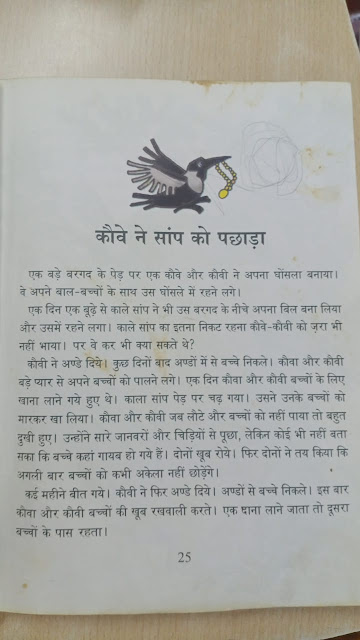 कौवे ने सांप को पछाड़ा
एक बड़े बरगद के पेड़ पर एक कौवे और कौवी ने अपना घोंसला बनाया।
वे अपने बाल-बच्चों के साथ उस घोंसले में रहने लगे।
एक दिन एक बूढ़े से काले सांप ने भी उस बरगद के नीचे अपना बिल बना लिया
और उसमें रहने लगा। काले सांप का इतना निकट रहना कौवे-कौवी को ज़रा भी
नहीं भाया। पर वे कर भी क्या सकते थे?
कौवी ने अण्डे दिये। कुछ दिनों बाद अण्डों में से बच्चे निकले। कौवा और कौवी
बड़े प्यार से अपने बच्चों को पालने लगे। एक दिन कौवा और कौवी बच्चों के लिए
खाना लाने गये हुए थे। काला सांप पेड़ पर चढ़ गया। उसने उनके बच्चों को
मारकर खा लिया। कौवा और कौवी जब लौटे और बच्चों को नहीं पाया तो बहुत
दुखी हुए। उन्होंने सारे जानवरों और चिड़ियों से पूछा, लेकिन कोई भी नहीं बता
सका कि बच्चे कहां गायब हो गये हैं। दोनों खूब रोये। फिर दोनों ने तय किया कि
अगली बार बच्चों को कभी अकेला नहीं छोड़ेंगे।
कई महीने बीत गये। कौवी ने फिर अण्डे दिये। अण्डों से बच्चे निकले। इस बार
कौवा और कौवी बच्चों की खूब रखवाली करते। एक खाना लाने जाता तो दूसरा
बच्चों के पास रहता।
25